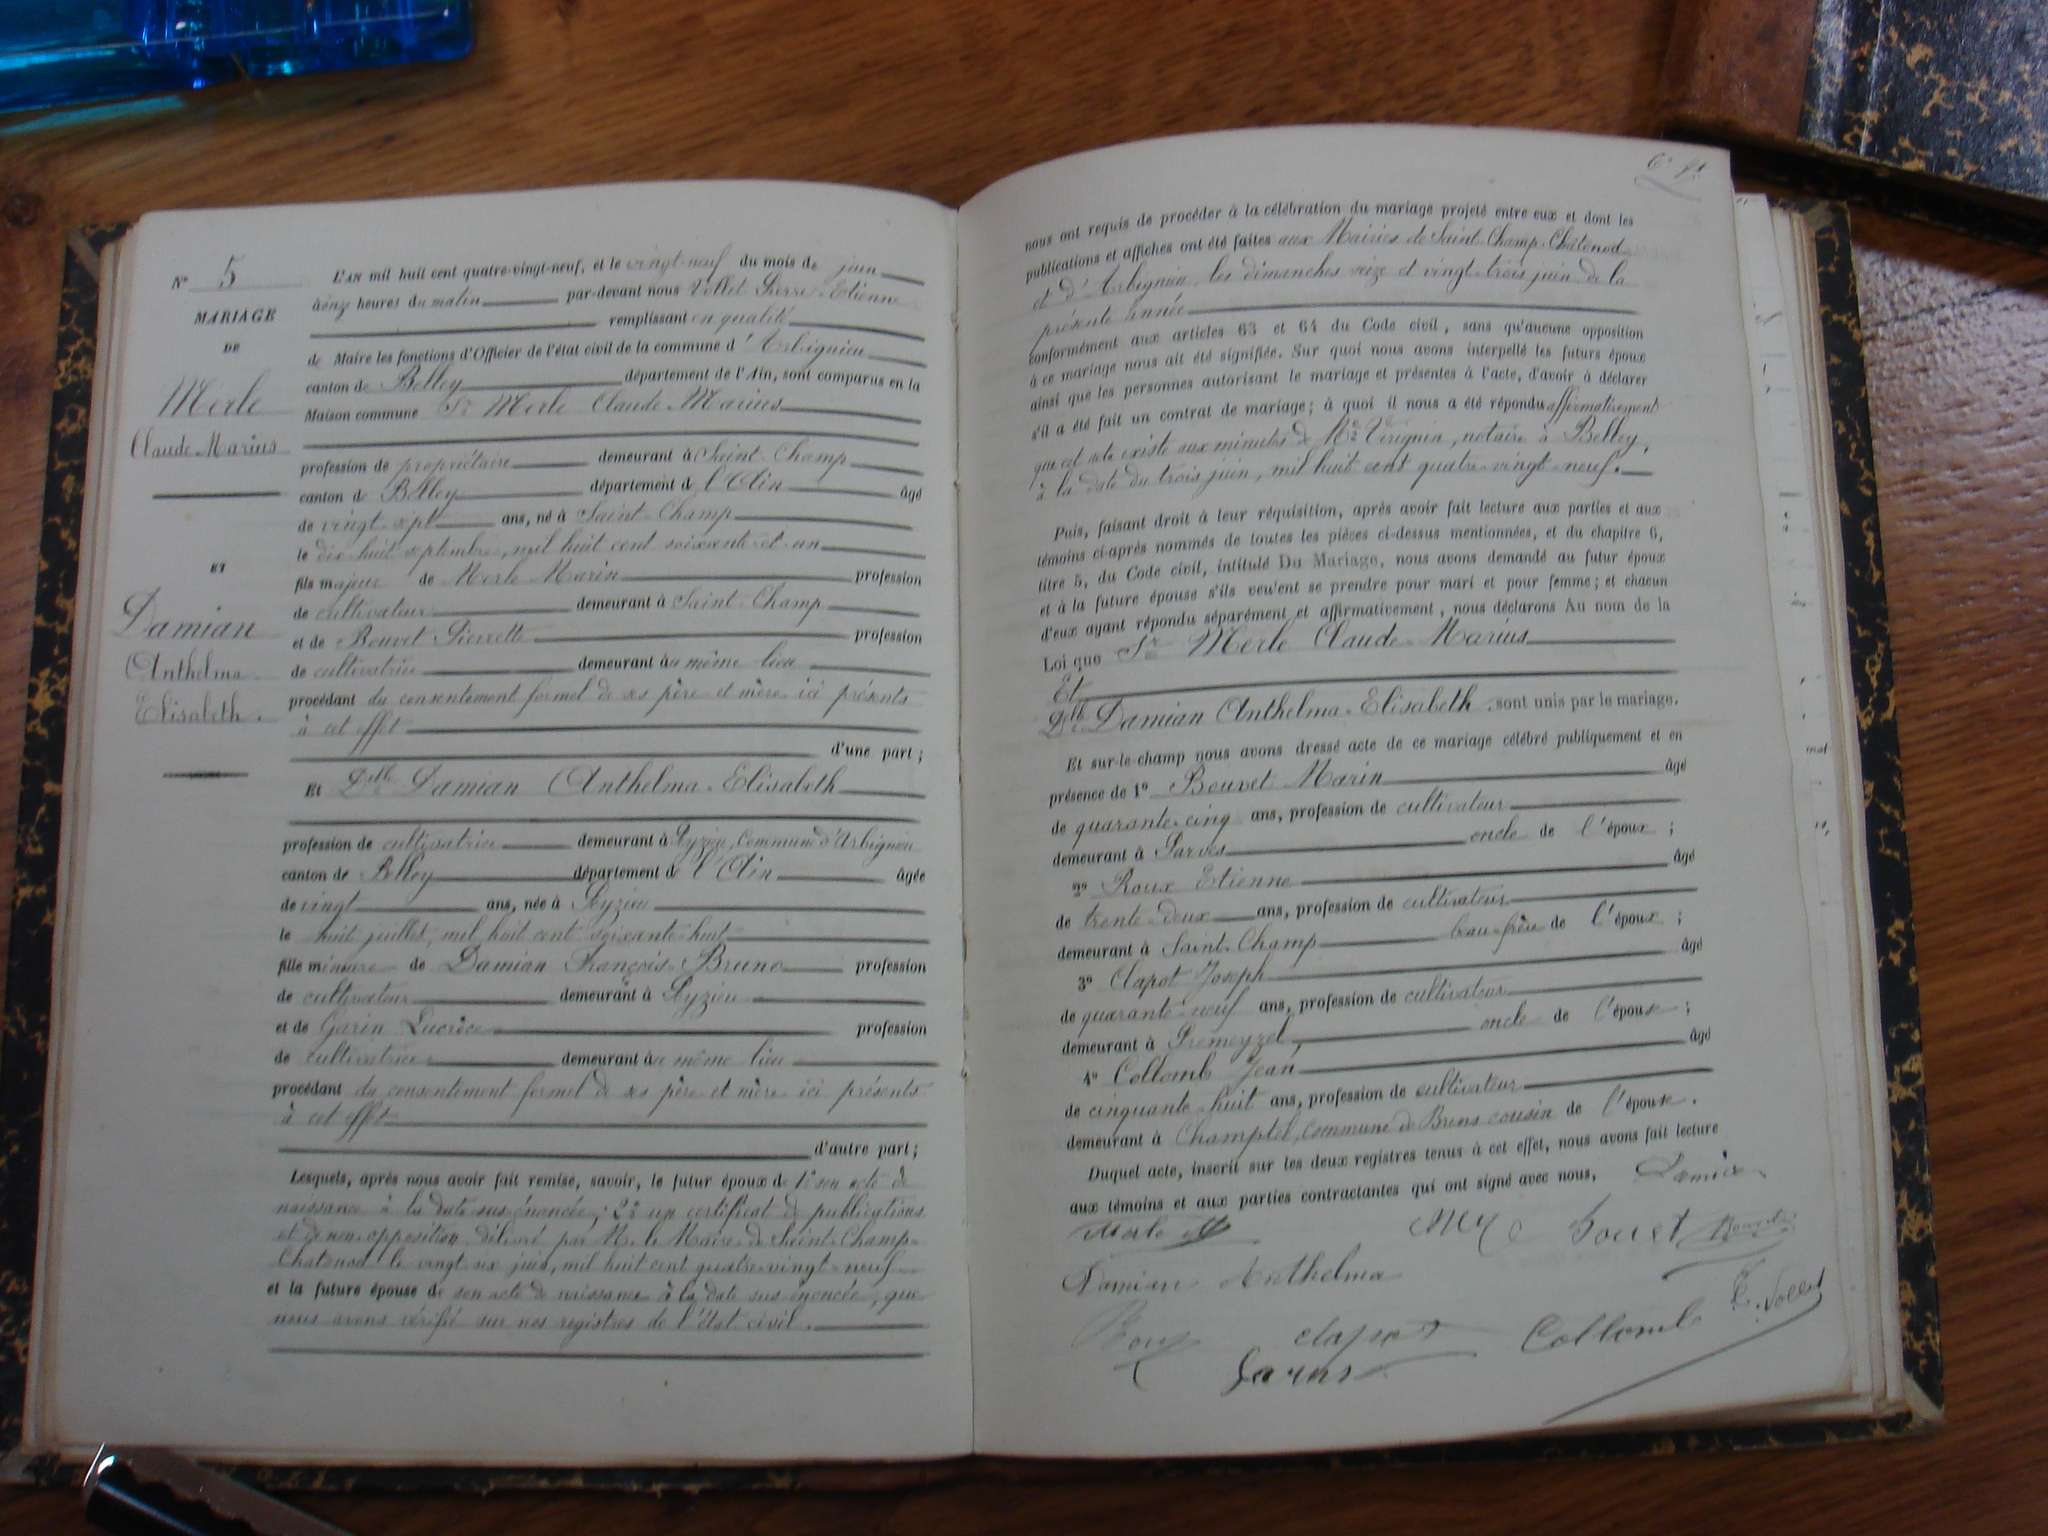 N° 5
MARIAGE
DE
Merle
Claude-Marius
ET
Damian
Anthelma
Elisabeth.
L'AN mil huit cent quatre-vingt-neuf, et le vingt-neuf du mois de juin
à onz heures du matin par-devant nous Vollet Pierre-Etienne
remplissant en qualité
de Maire les fonctions d'Officier de l'état civil de la commune d'Arbignieu
canton de Belley département de l'Ain, sont comparus en la
Maison commune Sr Merle Claude-Marius
profession de propriétaire demeurant à Saint-Champ
canton de Belley département de l'Ain âgé
de vingt-sept ans, né à Saint-Champ
le dix-huit septembre, mil huit cent soixante-et-un
fils majeur de Merle Marin profession
de cultivateur demeurant à Saint-Champ
et de Bouvet Pierrette profession
de cultivatrice demeurant au même lieu
procédant du consentement formel de ses père et mère ici présents
à cet effet
d'une part;
Et Delle Damian Anthelma-Elisabeth
profession de cultivatrice demeurant à Peyzieu, commune d'Arbignieu
canton de Belley département de l'Ain âgée
de vingt ans, née à Peyzieu
le huit juillet, mil huit cent soixante-huit
fille mineure de Damian François-Bruno profession
de cultivateur demeurant à Peyzieu
et de Garin Lucrèce profession
de cultivatrice demeurant au même lieu
procédant du consentement formel de ses père et mère ici présents
à cet effet
d'autre part;
Lesquels, après nous avoir fait remise, savoir, le futur époux de 1° son acte de
naissance à la date sus énoncée; 2° un certificat de publications
et de non opposition délivré par M. le Maire de Saint-Champ-
Chatonod le vingt six juin, mil huit cent quatre-vingt-neuf
et la future épouse de son acte de naissance à la date sus énoncée, que
nous avons vérifié sur nos registres de l'Etat-civil.
6e ft
nous ont requis de procéder à la célébration du mariage projeté entre eux et dont les
publications et affiches ont été faites aux Mairies de Saint-Champ-Châtonod
et d'Arbignieu, les dimanches seize et vingt-trois juin de la
présente année
conformément aux articles 63 et 64 du Code civil, sans qu'aucune opposition
à ce mariage nous ait été signifiée. Sur quoi nous avons interpellé les futurs époux
ainsi que les personnes autorisant le mariage et présentes à l'acte, d'avoir à déclarer
s'il a été fait un contrat de mariage; à quoi il nous a été répondu affirmativement
que cet acte existe aux minutes de Me notaire à Belley,
à la date du trois juin, mil huit cent quatre-vingt-neuf.
Puis, faisant droit à leur réquisition, après avoir fait lecture aux parties et aux
témoins ci-après nommés de toutes les pièces ci-dessus mentionnées, et du chapitre 6,
titre 5, du Code civil, intitulé Du Mariage, nous avons demandé au futur époux
et à la future épouse s'ils veulent se prendre pour mari et pour femme; et chacun
d'eux ayant répondu séparément et affirmativement, nous déclarons Au nom de la
Loi que Sr Merle Claude-Marius
Et
Delle Damian Anthelma-Elisabeth sont unis par le mariage.
Et sur-le-champ nous avons dressé acte de ce mariage célébré publiquement et en
présence de 1° Bouvet Marin âgé
de quarante-cinq ans, profession de cultivateur
demeurant à Parves oncle de l'époux;
2° Roux Etienne âgé
de trente-deux ans, profession de cultivateur
demeurant à Saint-Champ beau-frère de l'époux;
3° Clapot Joseph âgé
de quarante-neuf ans, profession de cultivateur
demeurant à Premeyzel, oncle de l'épouse;
4° Collomb Jean âgé
de cinquante-huit ans, profession de cultivateur
demeurant à Champtel, commune de Brens cousin de l'épouse.
Duquel acte, inscrit sur les deux registres tenus à cet effet, nous avons fait lecture
aux témoins et aux parties contractantes qui ont signé avec nous, Damian
Merle M Bouvet
Damian Anthelma
Roux clapot Collomb E. Vollet
Garin